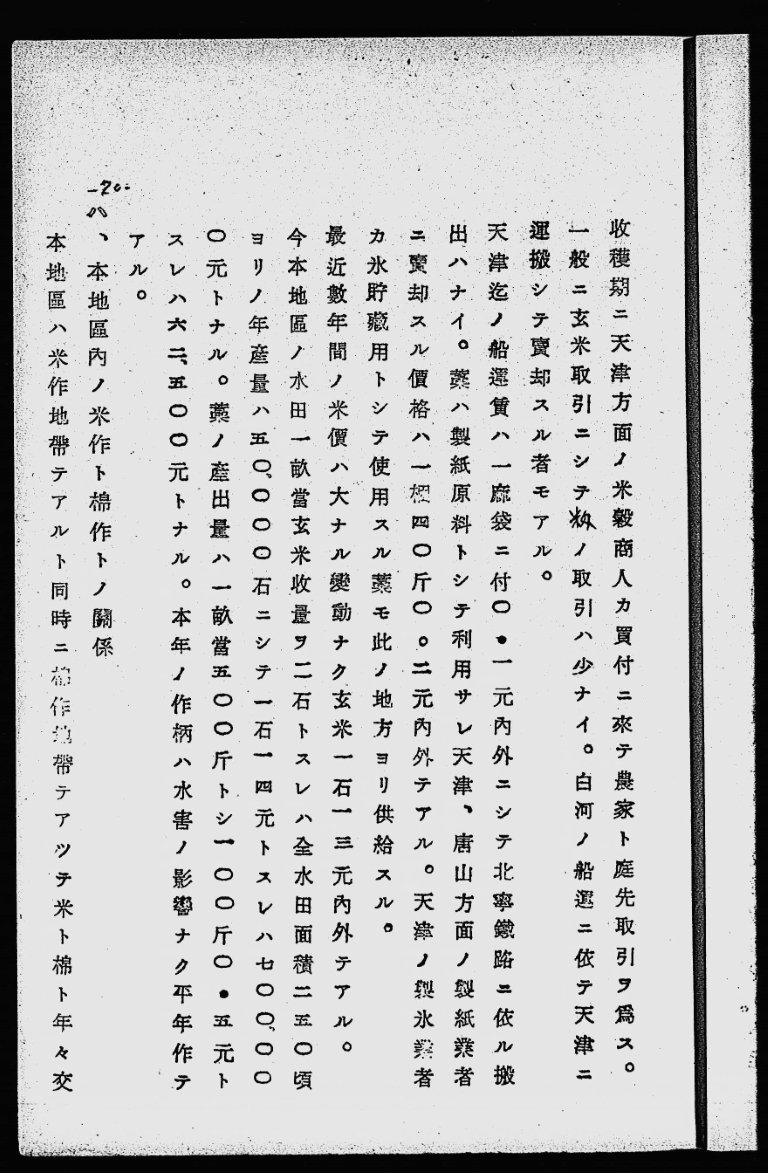 收穫期ニ天津方面ノ米穀商人カ買付ニ來テ農家ト庭先取引ヲ爲ス。
一般ニ玄米取引ニシテ籾ノ取引ハ少ナイ。白河ノ船運ニ依テ天津ニ
運搬シテ賣却スル者モアル。
天津迄ノ船運賃ハ一麻袋ニ付〇•一元內外ニシテ北寧鐵路ニ依ル搬
出ハナイ。藁ハ製紙原料トシテ利用サレ天津、唐山方面ノ製紙業者
ニ賣却スル價格ハ一梱四〇斤〇。二元內外テアル。天津ノ製氷業者
カ氷貯藏用トシテ使用スル藁モ此ノ地方ヨリ供給スル。
最近數年間ノ米價ハ大ナル變動ナク玄米一石一三元內外テアル。
今本地區ノ水田一畝當玄米收量ヲ二石トスレハ全水田面積二五〇頃
ヨリノ年產量ハ五〇、〇〇〇石ニシテ一石一四元トスレハ七〇〇、〇〇
〇元トナル。藁ノ產出量ハ一畝當五〇〇斤トシ一〇〇斤〇•五元ト
スレハ六二、五〇〇元トナル。本年ノ作柄ハ水害ノ影響ナク平年作テ
アル。
-20-
ハ、本地區內ノ米作ト棉作トノ關係
本地區ハ米作地帶テアルト同時ニ棉作地帶テアツテ米ト棉ト年々交